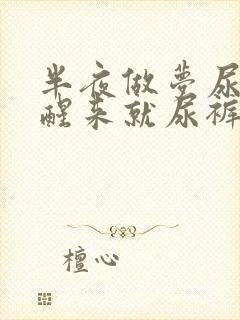 半夜做梦尿
醒来就尿裤
檀心